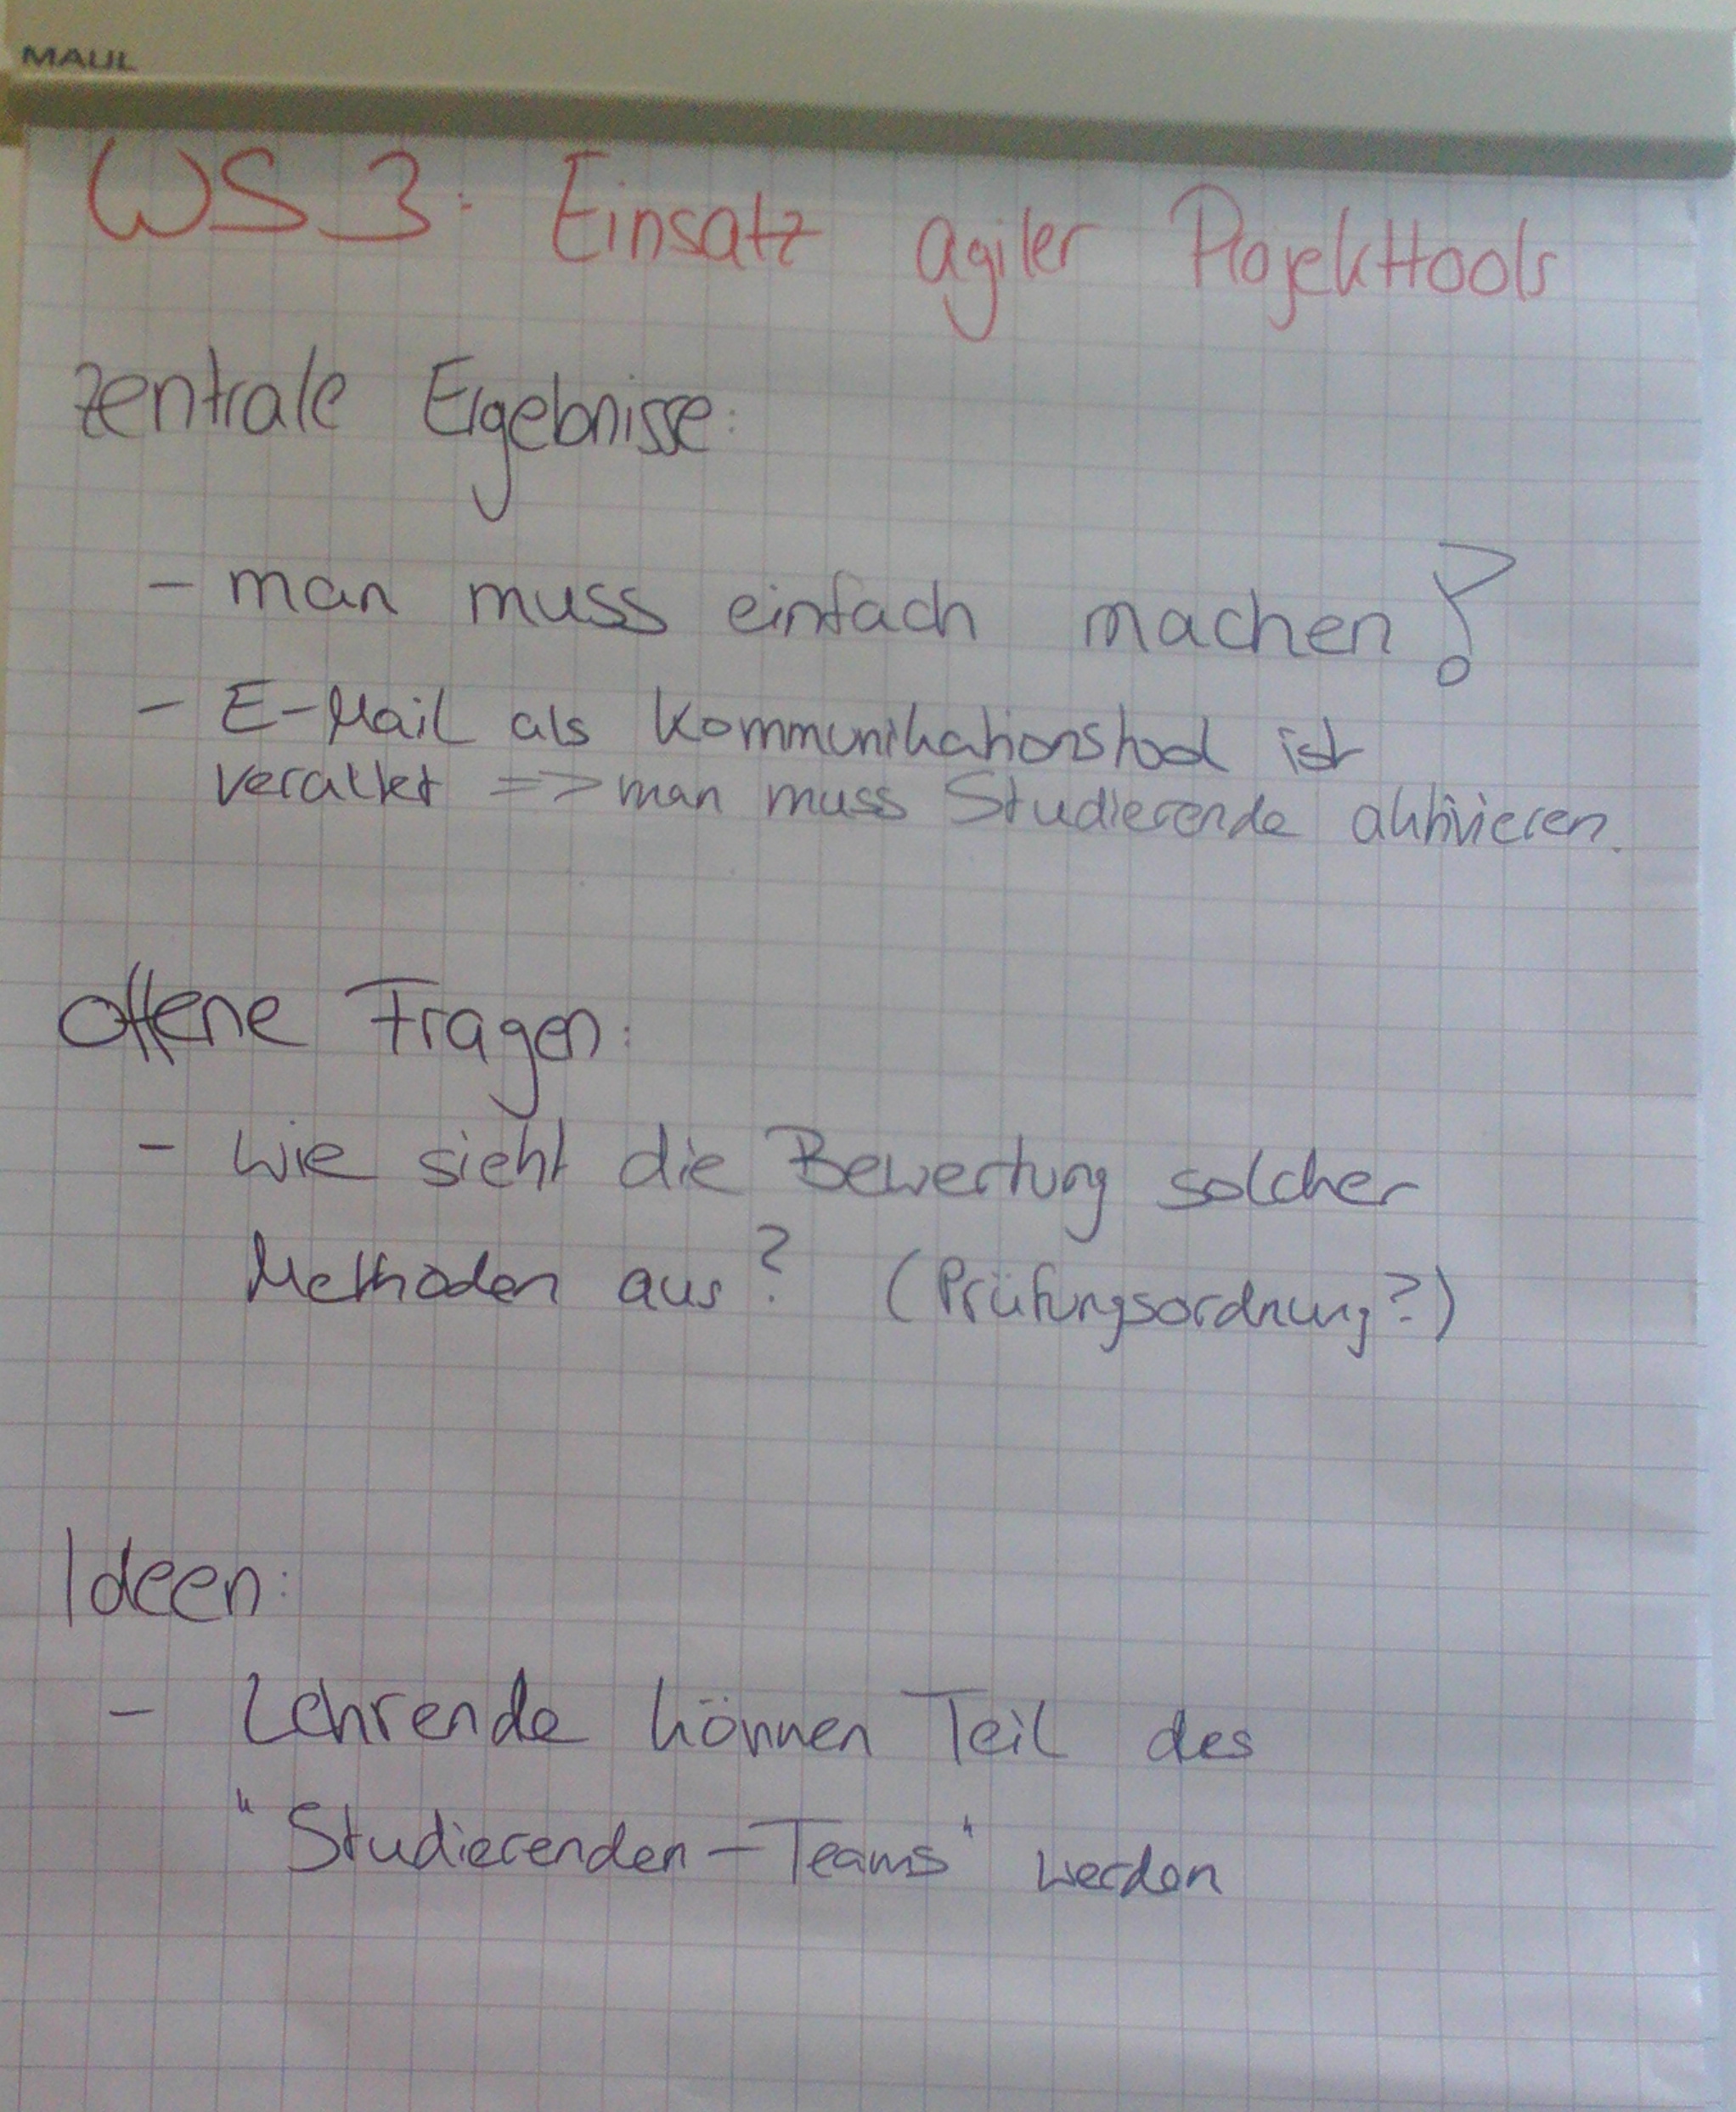 MAUL
WS 3: Einsatz agiler Projekttools
zentrale Ergebnisse:
- man muss einfach machen!
- E-Mail als Kommunikationstool ist
veraltet => man muss Studierende aktivieren.
offene Fragen:
- Wie sieht die Bewertung solcher
Methoden aus? (Prüfungsordnung?)
Ideen:
- Lehrende können Teil des
"Studierenden-Teams" werden